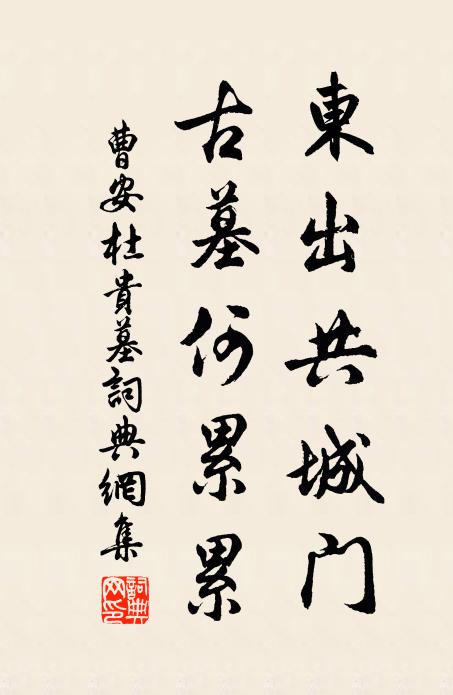 東出共城門
古墓何累累
曹安杜貴墓詞典網集
詞典網印